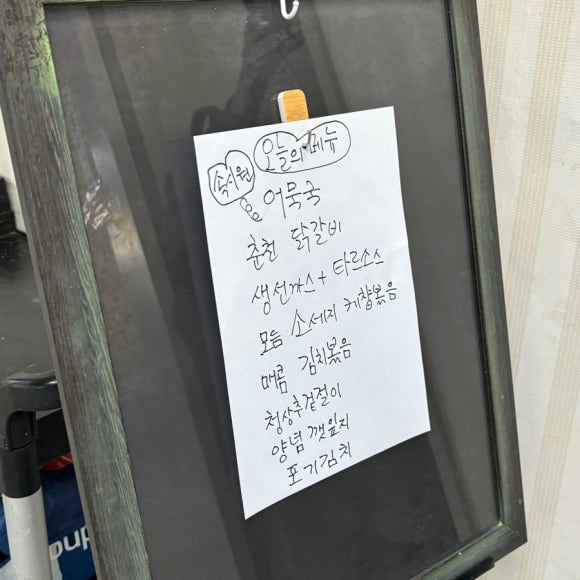 오늘의 메뉴
속시원 어묵국
춘천 닭갈비
생선까스 + 타르소스
모듬 소세지 케챱볶음
매콤 김치볶음
청상추겉절이
양념깻잎지
포기김치